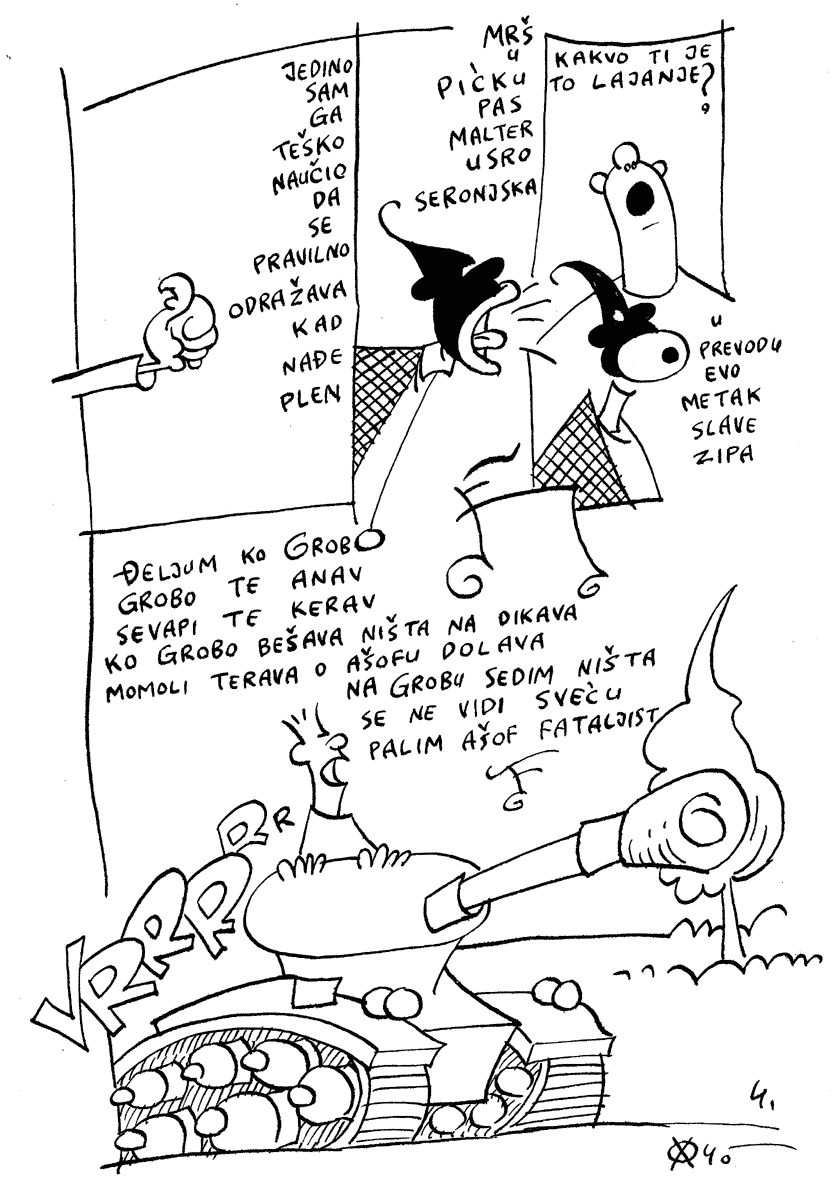 JEDINO
SAM
GA
TEŠKO
NAUČIO
DA
SE
PRAVILNO
ODRAŽAVA
KAD
NAĐE
PLEN
MRŠ
U
PIČKU
PAS
MALTER
USRO
SERONJSKA
KAKVO TI JE
TO LAJANJE?
U
PREVODU
EVO
METAK
SLAVE
ZIPA
ĐELJUM KO GROBO
GROBO TE ANAV
SEVAPI TE KERAV
KO GROBO BEŠAVA NIŠTA NA DIKAVA
MOMOLI TERAVA O AŠOFU DOLAVA
NA GROBU SEDIM NIŠTA
SE NE VIDI SVEĆU
PALIM AŠOF FATALJIST
VRRRRR
4.